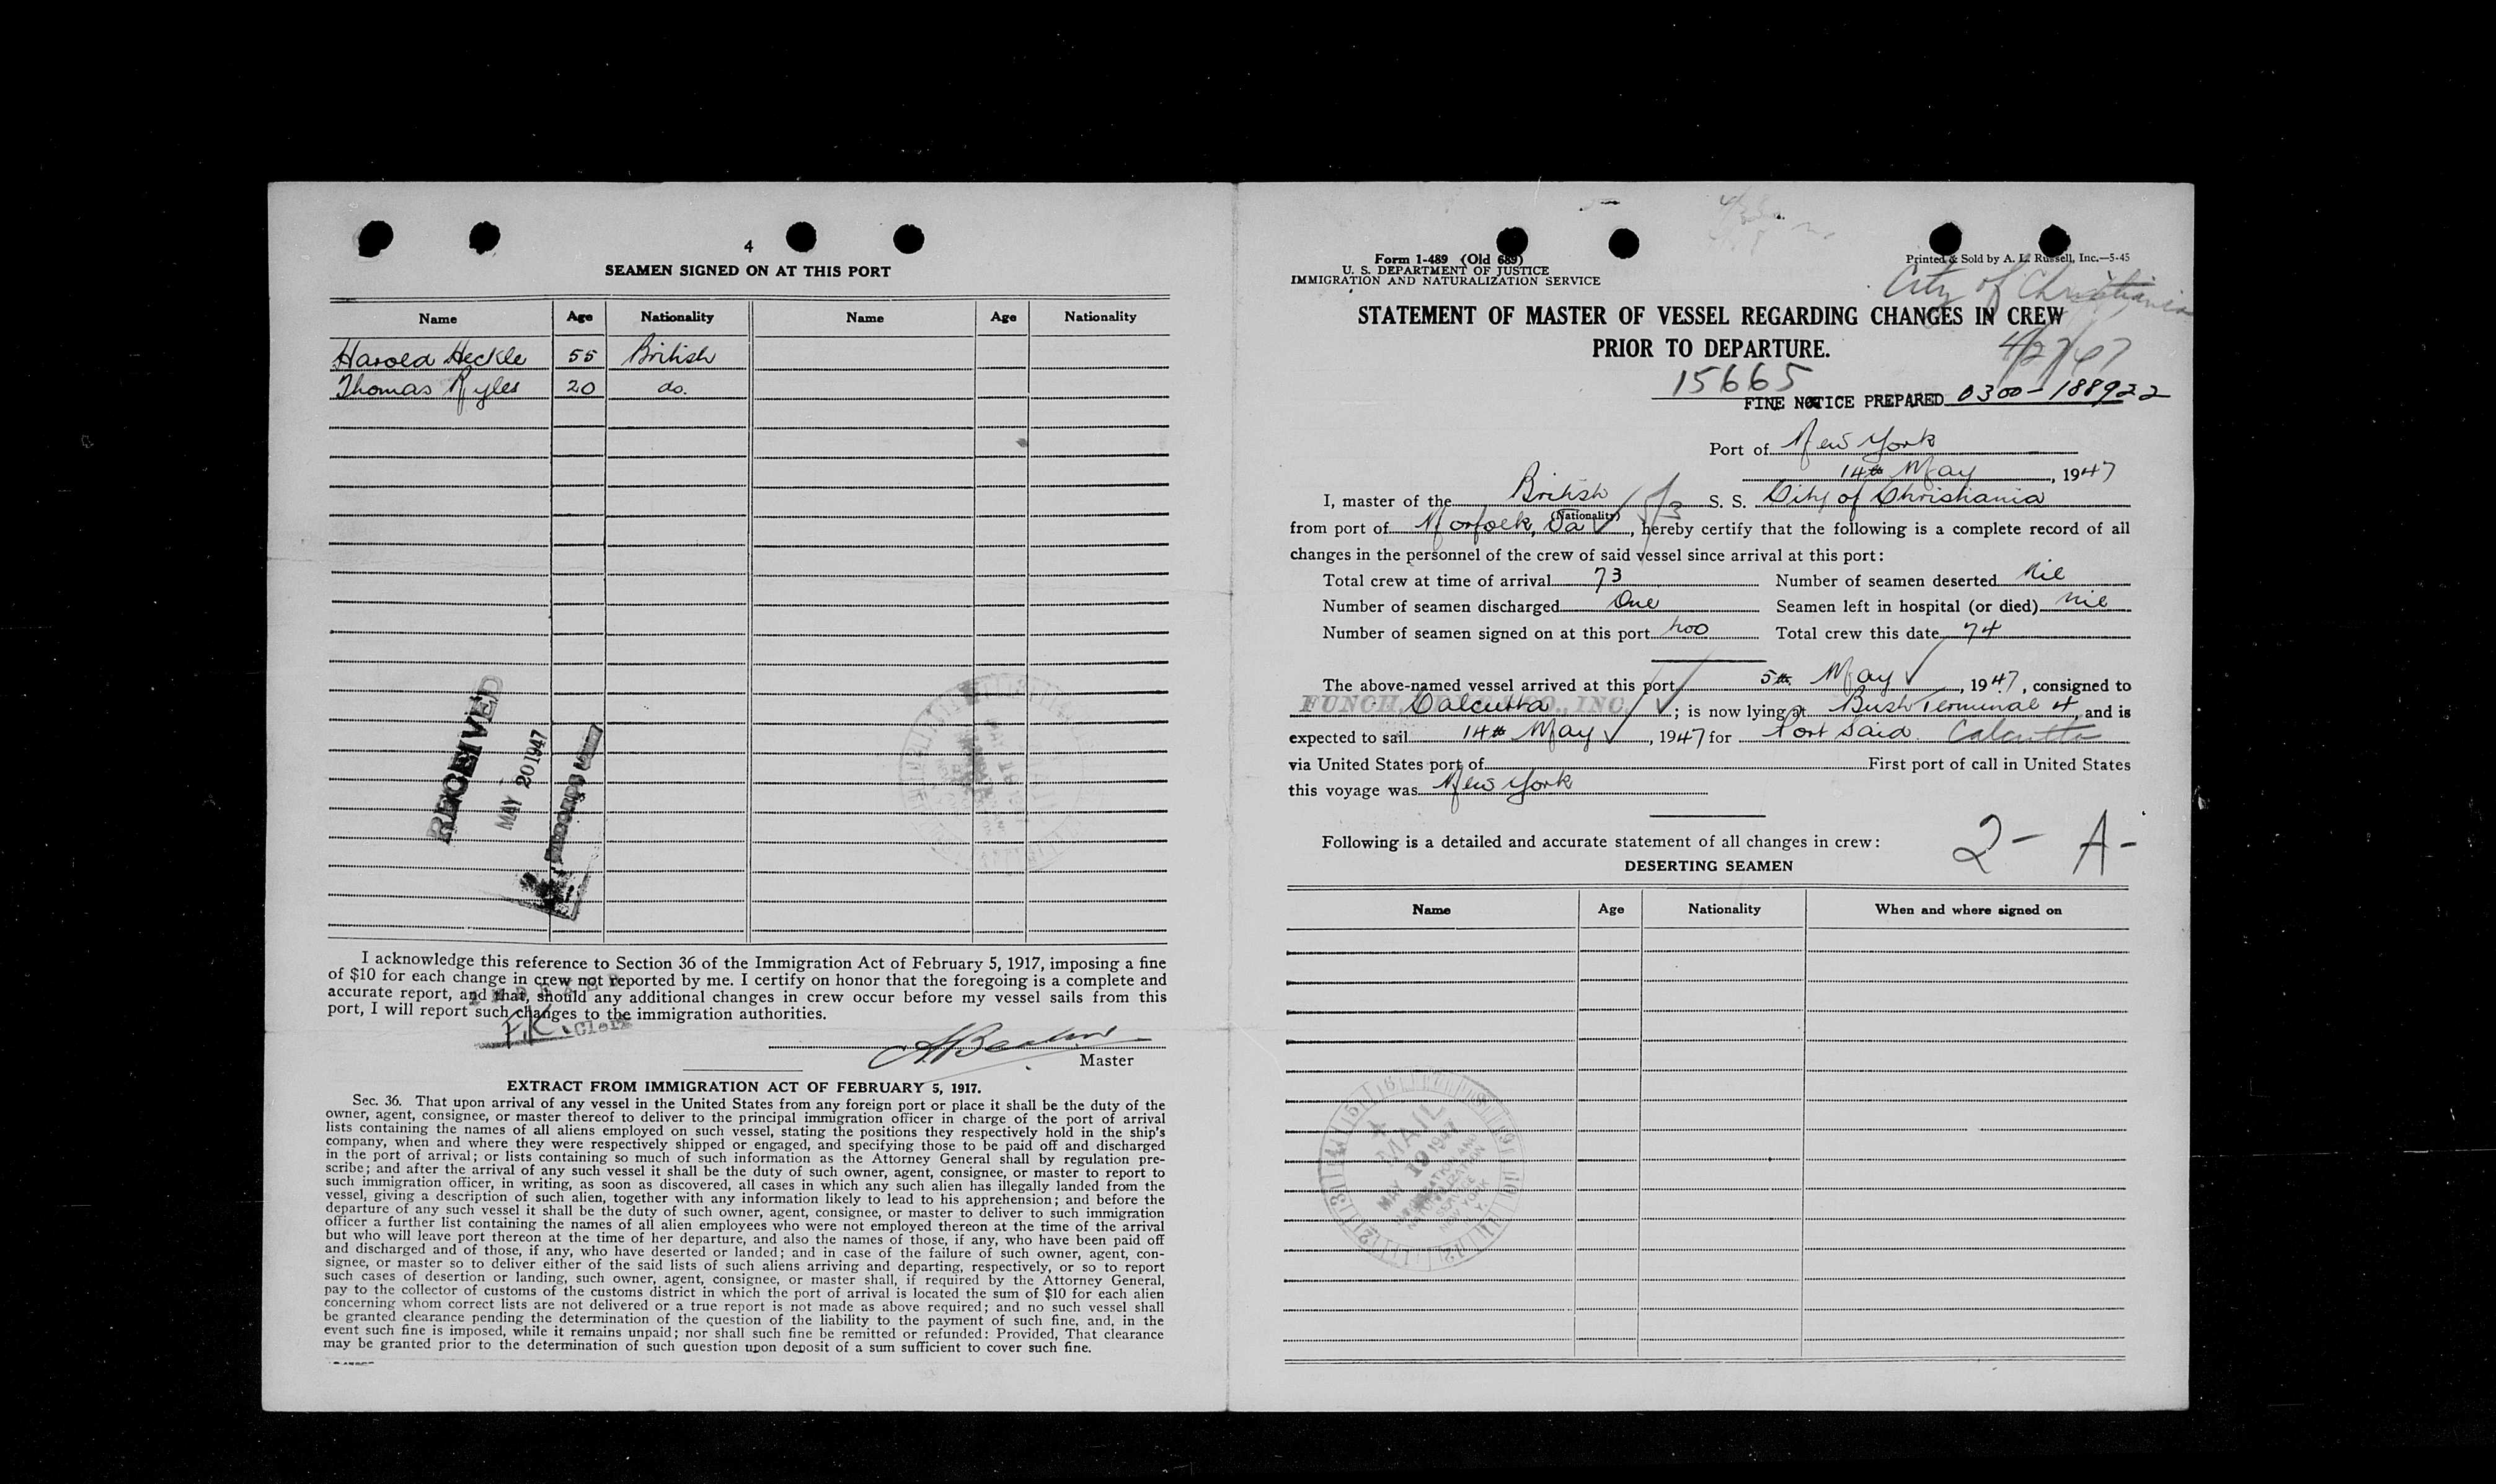 4
SEAMEN SIGNED ON AT THIS PORT
Name Age Nationality Name Age Nationality
Harold Heckle 55 British
Thomas Ryles 20 do.
RECEIVED
MAY 20 1947
I acknowledge this reference to Section 36 of the Immigration Act of February 5, 1917, imposing a fine
of $10 for each change in crew not reported by me. I certify on honor that the foregoing is a complete and
accurate report, and that, should any additional changes in crew occur before my vessel sails from this
port, I will report such changes to the immigration authorities.
F.K. Clerk
Master
EXTRACT FROM IMMIGRATION ACT OF FEBRUARY 5, 1917.
Sec. 36. That upon arrival of any vessel in the United States from any foreign port or place it shall be the duty of the
owner, agent, consignee, or master thereof to deliver to the principal immigration officer in charge of the port of arrival
lists containing the names of all aliens employed on such vessel, stating the positions they respectively hold in the ship's
company, when and where they were respectively shipped or engaged, and specifying those to be paid off and discharged
in the port of arrival; or lists containing so much of such information as the Attorney General shall by regulation pre-
scribe; and after the arrival of any such vessel it shall be the duty of such owner, agent, consignee, or master to report to
such immigration officer, in writing, as soon as discovered, all cases in which any such alien has illegally landed from the
vessel, giving a description of such alien, together with any information likely to lead to his apprehension; and before the
departure of any such vessel it shall be the duty of such owner, agent, consignee, or master to deliver to such immigration
officer a further list containing the names of all alien employees who were not employed thereon at the time of the arrival
but who will leave port thereon at the time of her departure, and also the names of those, if any, who have been paid off
and discharged and of those, if any, who have deserted or landed; and in case of the failure of such owner, agent, con-
signee, or master so to deliver either of the said lists of such aliens arriving and departing, respectively, or so to report
such cases of desertion or landing, such owner, agent, consignee, or master shall, if required by the Attorney General,
pay to the collector of customs of the customs district in which the port of arrival is located the sum of $10 for each alien
concerning whom correct lists are not delivered or a true report is not made as above required; and no such vessel shall
be granted clearance pending the determination of the question of the liability to the payment of such fine, and, in the
event such fine is imposed, while it remains unpaid; nor shall such fine be remitted or refunded: Provided, That clearance
may be granted prior to the determination of such question upon deposit of a sum sufficient to cover such fine.
Form 1-489 (Old 689)
U. S. DEPARTMENT OF JUSTICE
IMMIGRATION AND NATURALIZATION SERVICE
Printed & Sold by A. L. Russell, Inc.—5-45
City of Christiania
STATEMENT OF MASTER OF VESSEL REGARDING CHANGES IN CREW
PRIOR TO DEPARTURE.
4/27/47
15665
FINE NOTICE PREPARED 0300-188922
Port of New York
14th May, 1947
I, master of the British S. S. City of Christiania
(Nationality)
from port of Norfolk, Va, hereby certify that the following is a complete record of all
changes in the personnel of the crew of said vessel since arrival at this port:
Total crew at time of arrival 73 Number of seamen deserted Nil
Number of seamen discharged One Seamen left in hospital (or died) Nil
Number of seamen signed on at this port two Total crew this date 74
The above-named vessel arrived at this port 5th May, 1947, consigned to
Calcutta; is now lying at Bush Terminal 4, and is
expected to sail 14th May, 1947 for Port Said Calcutta
via United States port of First port of call in United States
this voyage was New York
Following is a detailed and accurate statement of all changes in crew:
2- A-
DESERTING SEAMEN
Name Age Nationality When and where signed on
MAIL
MAY 19 1947